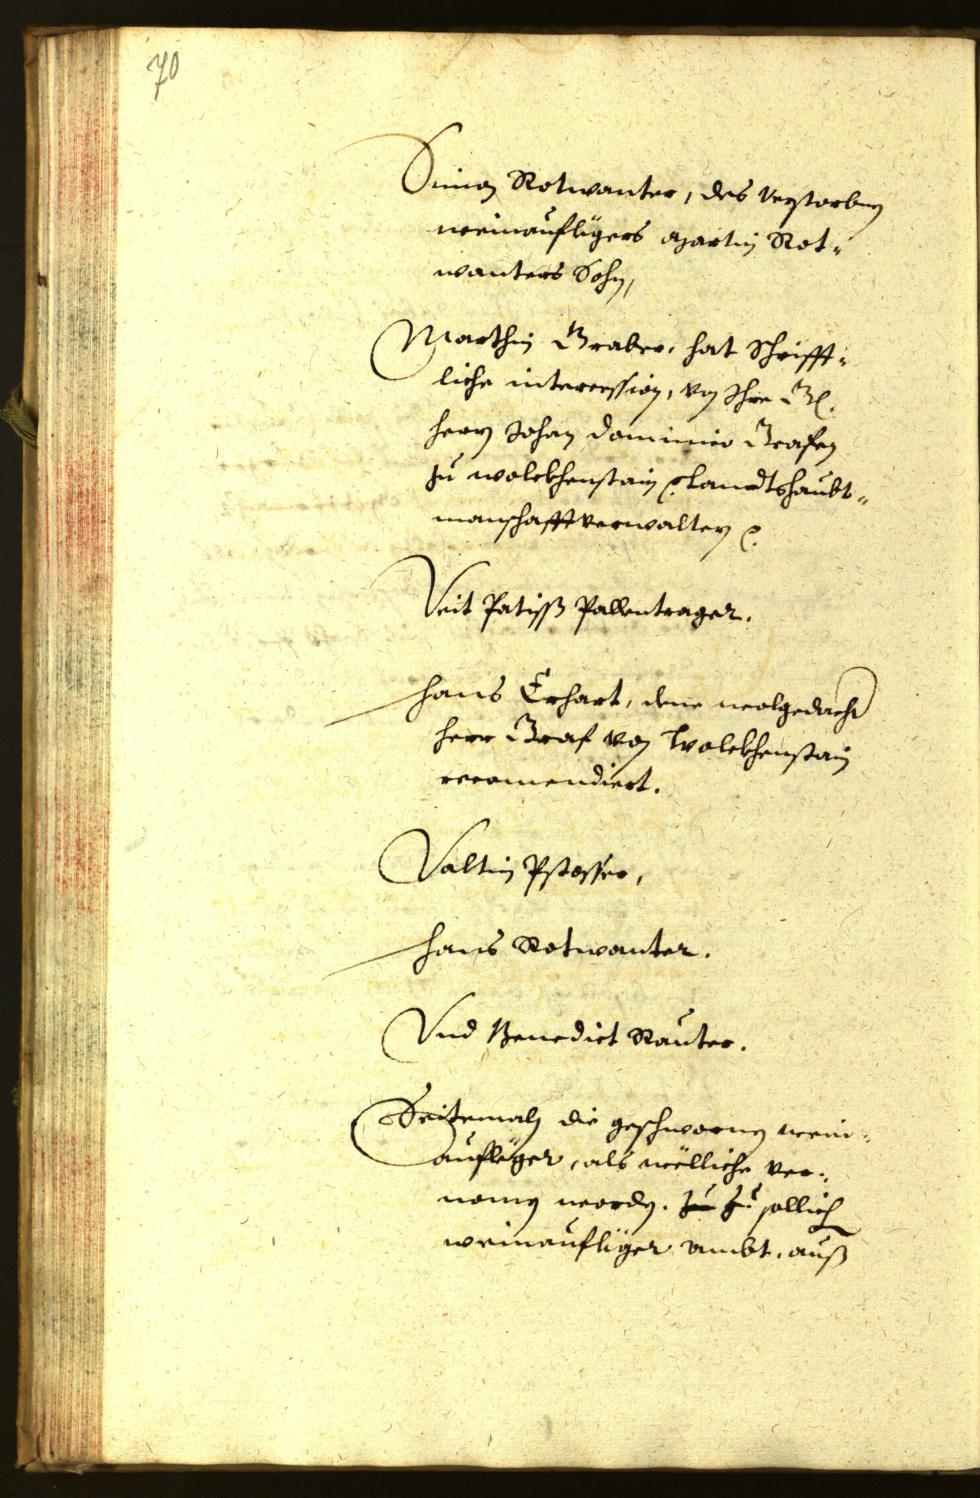 70
Simon Rotwanter, des verstorbnen
weinauflegers Martin Rot-
wanters Sohn,
Marthin Graber, hat Schrifft-
liche intercession, von Ihre G.
herrn Johan Dominico Grafen
zu wolckhenstain Landtshaubt-
manschafftverwaltern
Veit Patiss Pallentrager.
hans Erhart, deme wolgedacht
herr Graf von Wolckhenstain
recomendiert.
Valtin
hans Rotwanter.
Vnd Benedict Rauter.
Seitemaln die geschwornen wein-
aufleger, als welliche ver-
nomen worden. zu sollich
weinaufleger ambt, auß